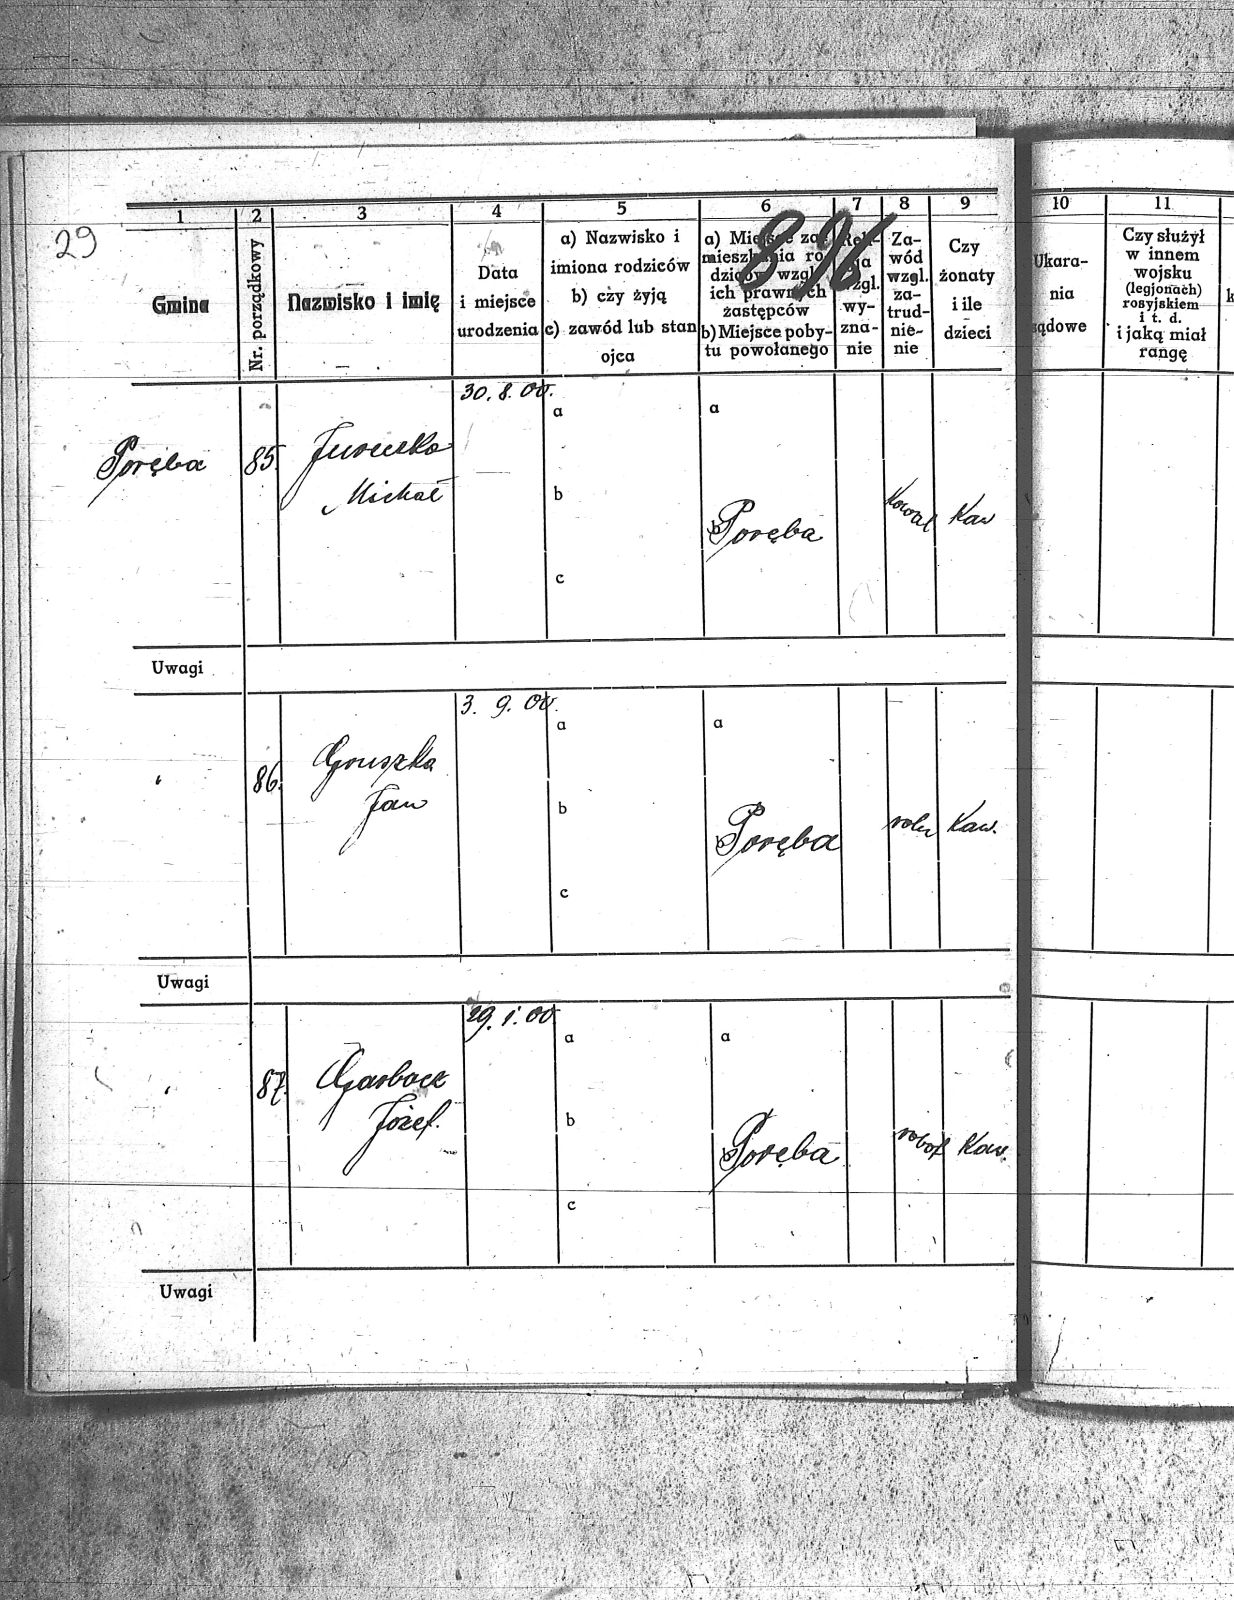 29
896
1
2
3
4
5
6
7
8
9
10
11
Gmina
Nr. porządkowy
Nazwisko i imię
Data
i miejsce
urodzenia
a) Nazwisko i
imiona rodziców
b) czy żyją
c) zawód lub stan
ojca
a) Miejsce za-
mieszkania ro-
dziców wzgl.
ich prawnych
zastępców
b) Miejsce poby-
tu powołanego
Reli-
gja
wzgl.
wy-
zna-
nie
Za-
wód
wzgl.
za-
trud-
nie-
nie
Czy
żonaty
i ile
dzieci
Ukara-
nia
sądowe
Czy służył
w innem
wojsku
(legjonach)
rosyjskiem
i t. d.
i jaką miał
rangę
Poręba
85.
Michał
30. 8. 00.
a
b
c
a
b Poręba
Kowal
Kaw
Uwagi
"
86.
Gruszka
Jan
3. 9. 00.
a
b
c
a
b Poręba
roln
Kaw.
Uwagi
"
87.
Garbacz
Józef.
29. 1. 00.
a
b
c
a
b Poręba
robot
Kaw.
Uwagi